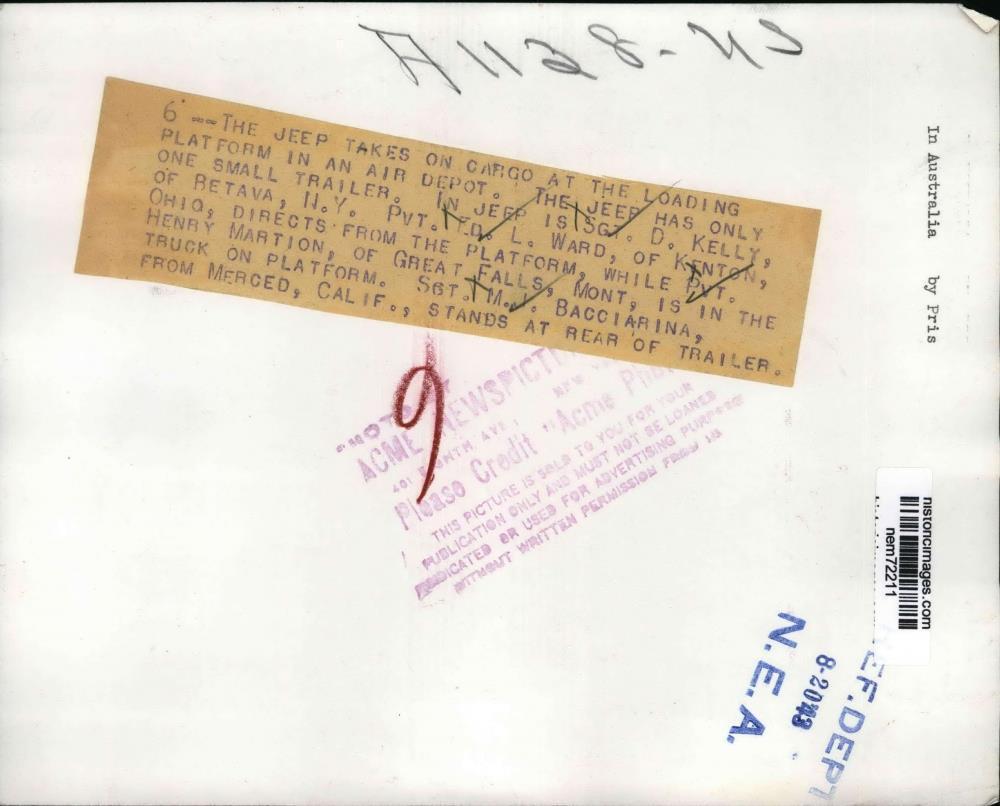 6 --THE JEEP TAKES ON CARGO AT THE LOADING
PLATFORM IN AN AIR DEPOT. THE JEEP HAS ONLY
ONE SMALL TRAILER. IN JEEP IS SGT. D. KELLY,
OF RETAVA, N.Y. PVT. ED. L. WARD, OF KENTON,
OHIO, DIRECTS FROM THE PLATFORM, WHILE PVT.
HENRY MARTION, OF GREAT FALLS, MONT, IS IN THE
TRUCK ON PLATFORM. SGT. M.J. BACCIARINA,
FROM MERCED, CALIF., STANDS AT REAR OF TRAILER.
In Australia by Pris
9
ACME NEWSPICT
AVE.
NEW
Please Credit "Acme
THIS PICTURE IS SOLD TO YOU FOR YOUR
PUBLICATION ONLY AND MUST NOT BE LOANED
OR USED FOR ADVERTISING PURPOSE
WITHOUT WRITTEN PERMISSION FROM US
historicimages.com
nem72211
REF. DEPT
N.E.A.